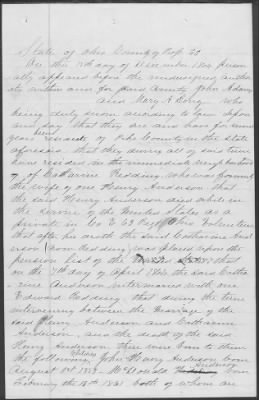 State of Ohio County of Pike SS
On the 13th day of December 1864 person
ally appeared before the undersigned author
ity within and for said County John Adams
and Mary A. who
being duly sworn according to law depose
and say that they are and have for
years been residents of Pike County in the State
aforesaid that they during all of said time
have resided in the immediate neighborhood
of Catharine Redding who was formerly
the wife of one Henry Anderson that
the said Henry Anderson died while in
the service of the United States as a
private in Co Ohio Volunteers
that after his death the said Catharine And
erson (now Redding) was placed upon the
pension list of the United States that
on the 7th day of April 1864 the said Catha
rine Anderson intermarried with one
Edward Redding, that during the time
intervening between the marriage of the
said Henry Anderson and Catharine
Anderson and the death of the said
Henry Anderson there were born to them
the following children John Henry Anderson born
August 1st 1859 McDonald Anderson born
February the 18th 1861 both of whom are